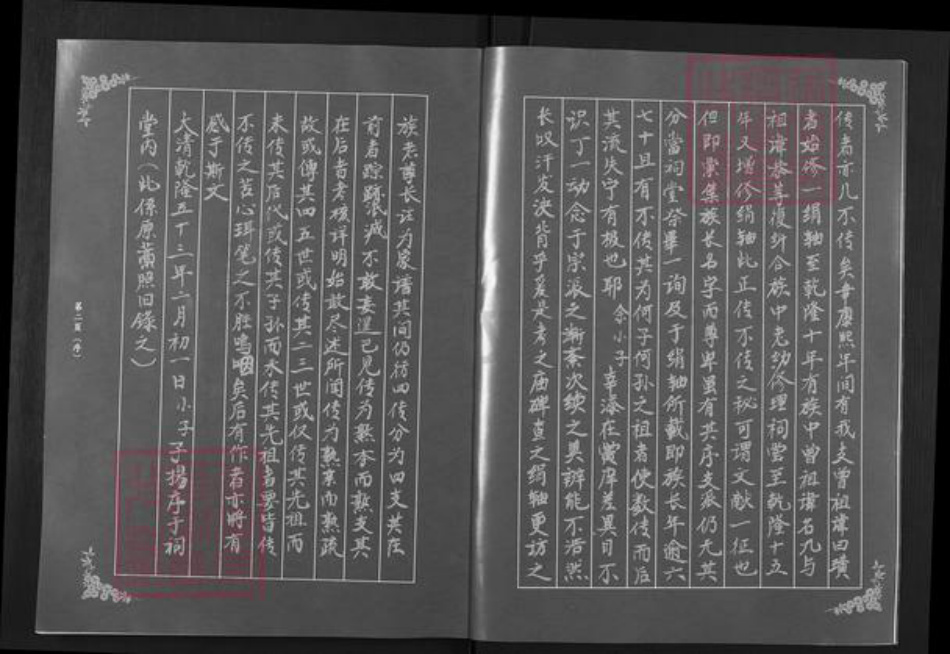 传者亦几不传矣幸康熙年间有我支曾祖諱曰璜
者始修一绢轴至乾隆十年有族中曾祖諱名九与
祖諱恭等復纠合族中老幼修理祠堂至乾隆十五
年又增修绢轴此正传不传之秘可谓文献一征也
但即彙集族长名字而尊卑虽有其序支派仍无其
分當祠堂祭畢一询及于绢轴所载即族长年逾六
七十且有不传其为何子何孙之祖者使数传而后
其流失宁有极也耶 念小子 幸漆在黉庠差異目不
识丁一动念于宗派之渐紊次续之莫辨能不浩然
长叹汗发浃背乎爰是考之庙碑查之绢轴更访之
族老尊长注为家谱其间仍按四传分为四支其在
前者踪跡泯滅不敢妄逞己见传为熟者而熟支其
在后者考核详明始敢尽述所闻传为熟亲而熟疏
故或傅其四五世或传其二三世或仅传其先祖而
未传其后代或传其子孙而未传其先祖者要皆传
不传之苦心珥笔之不胜鳴咽矣后有作者亦將有
感于斯文
大清乾隆五十三年二月初一日小子子揚序于祠
堂内(此係原蕾照旧錄之)
第二頁(序)